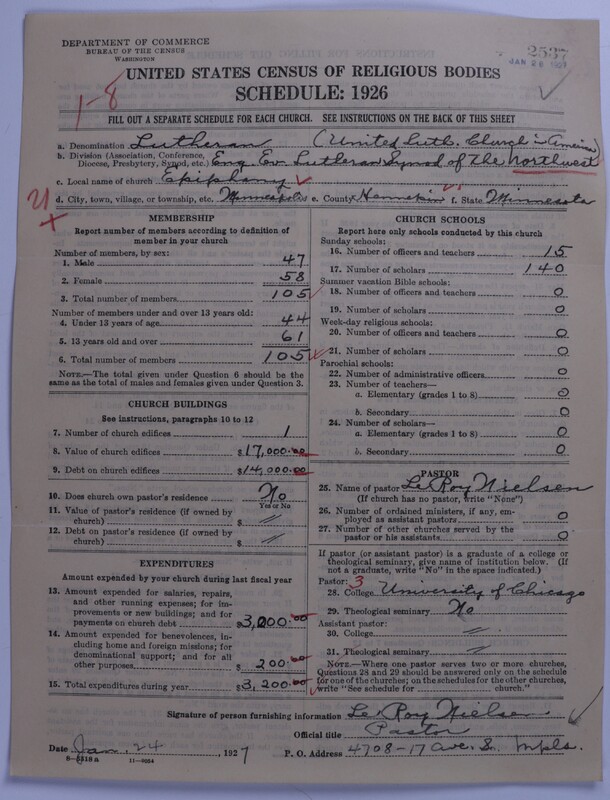 DEPARTMENT OF COMMERCE
BUREAU OF THE CENSUS
WASHINGTON
2537
JAN 26 1927
UNITED STATES CENSUS OF RELIGIOUS BODIES
SCHEDULE: 1926
1-8
FILL OUT A SEPARATE SCHEDULE FOR EACH CHURCH. SEE INSTRUCTIONS ON THE BACK OF THIS SHEET
a. Denomination Lutheran (United Luth. Church in America)
b. Division (Association, Conference, Diocese, Presbytery, Synod, etc.) Eng. Ev. Lutheran Synod of the Northwest
c. Local name of church Epiphany
d. City, town, village, or township, etc. Minneapolis e. County Hennepin f. State Minnesota
MEMBERSHIP
Report number of members according to definition of
member in your church
Number of members, by sex:
1. Male 47
2. Female 58
3. Total number of members 105
Number of members under and over 13 years old:
4. Under 13 years of age 44
5. 13 years old and over 61
6. Total number of members 105
NOTE.—The total given under Question 6 should be
same as the total of males and females given under Question 3.
CHURCH BUILDINGS
See instructions, paragraphs 10 to 12
7. Number of church edifices 1
8. Value of church edifices $17,000.00
9. Debt on church edifices $14,000.00
10. Does church own pastor's residence No
Yes or No
11. Value of pastor's residence (if owned by
church) $ //
12. Debt on pastor's residence (if owned by
church) $ //
EXPENDITURES
Amount expended by your church during last fiscal year
13. Amount expended for salaries, repairs,
and other running expenses; for im-
provements or new buildings; and for
payments on church debt $3,000.00
14. Amount expended for benevolences, in-
cluding home and foreign missions; for
denominational support; and for all
other purposes $ 200.00
15. Total expenditures during year $3,200.00
CHURCH SCHOOLS
Report here only schools conducted by this church
Sunday schools:
16. Number of officers and teachers 15
17. Number of scholars 140
Summer vacation Bible schools:
18. Number of officers and teachers 0
19. Number of scholars 0
Week-day religious schools:
20. Number of officers and teachers 0
21. Number of scholars 0
Parochial schools:
22. Number of administrative officers 0
23. Number of teachers—
a. Elementary (grades 1 to 8) 0
b. Secondary 0
24. Number of scholars—
a. Elementary (grades 1 to 8) 0
b. Secondary 0
PASTOR
25. Name of pastor Le Roy Nielsen
(If church has no pastor, write "None")
26. Number of ordained ministers, if any, em-
ployed as assistant pastors 0
27. Number of other churches served by the
pastor or his assistants 0
If pastor (or assistant pastor) is a graduate of a college or
theological seminary, give name of institution below. (If
not a graduate, write "No" in the space indicated.)
Pastor: 3
28. College University of Chicago
29. Theological seminary No
Assistant pastor:
30. College //
31. Theological seminary //
NOTE.—Where one pastor serves two or more churches,
Questions 28 and 29 should be answered only on the schedule
for one of the churches; on the schedules for the other churches,
write "See schedule for church."
Signature of person furnishing information Le Roy Nielsen
Official title Pastor
Date Jan. 24, 1927 P. O. Address 4708-17 Ave. S. Mpls.
8-5318 a 11-9064